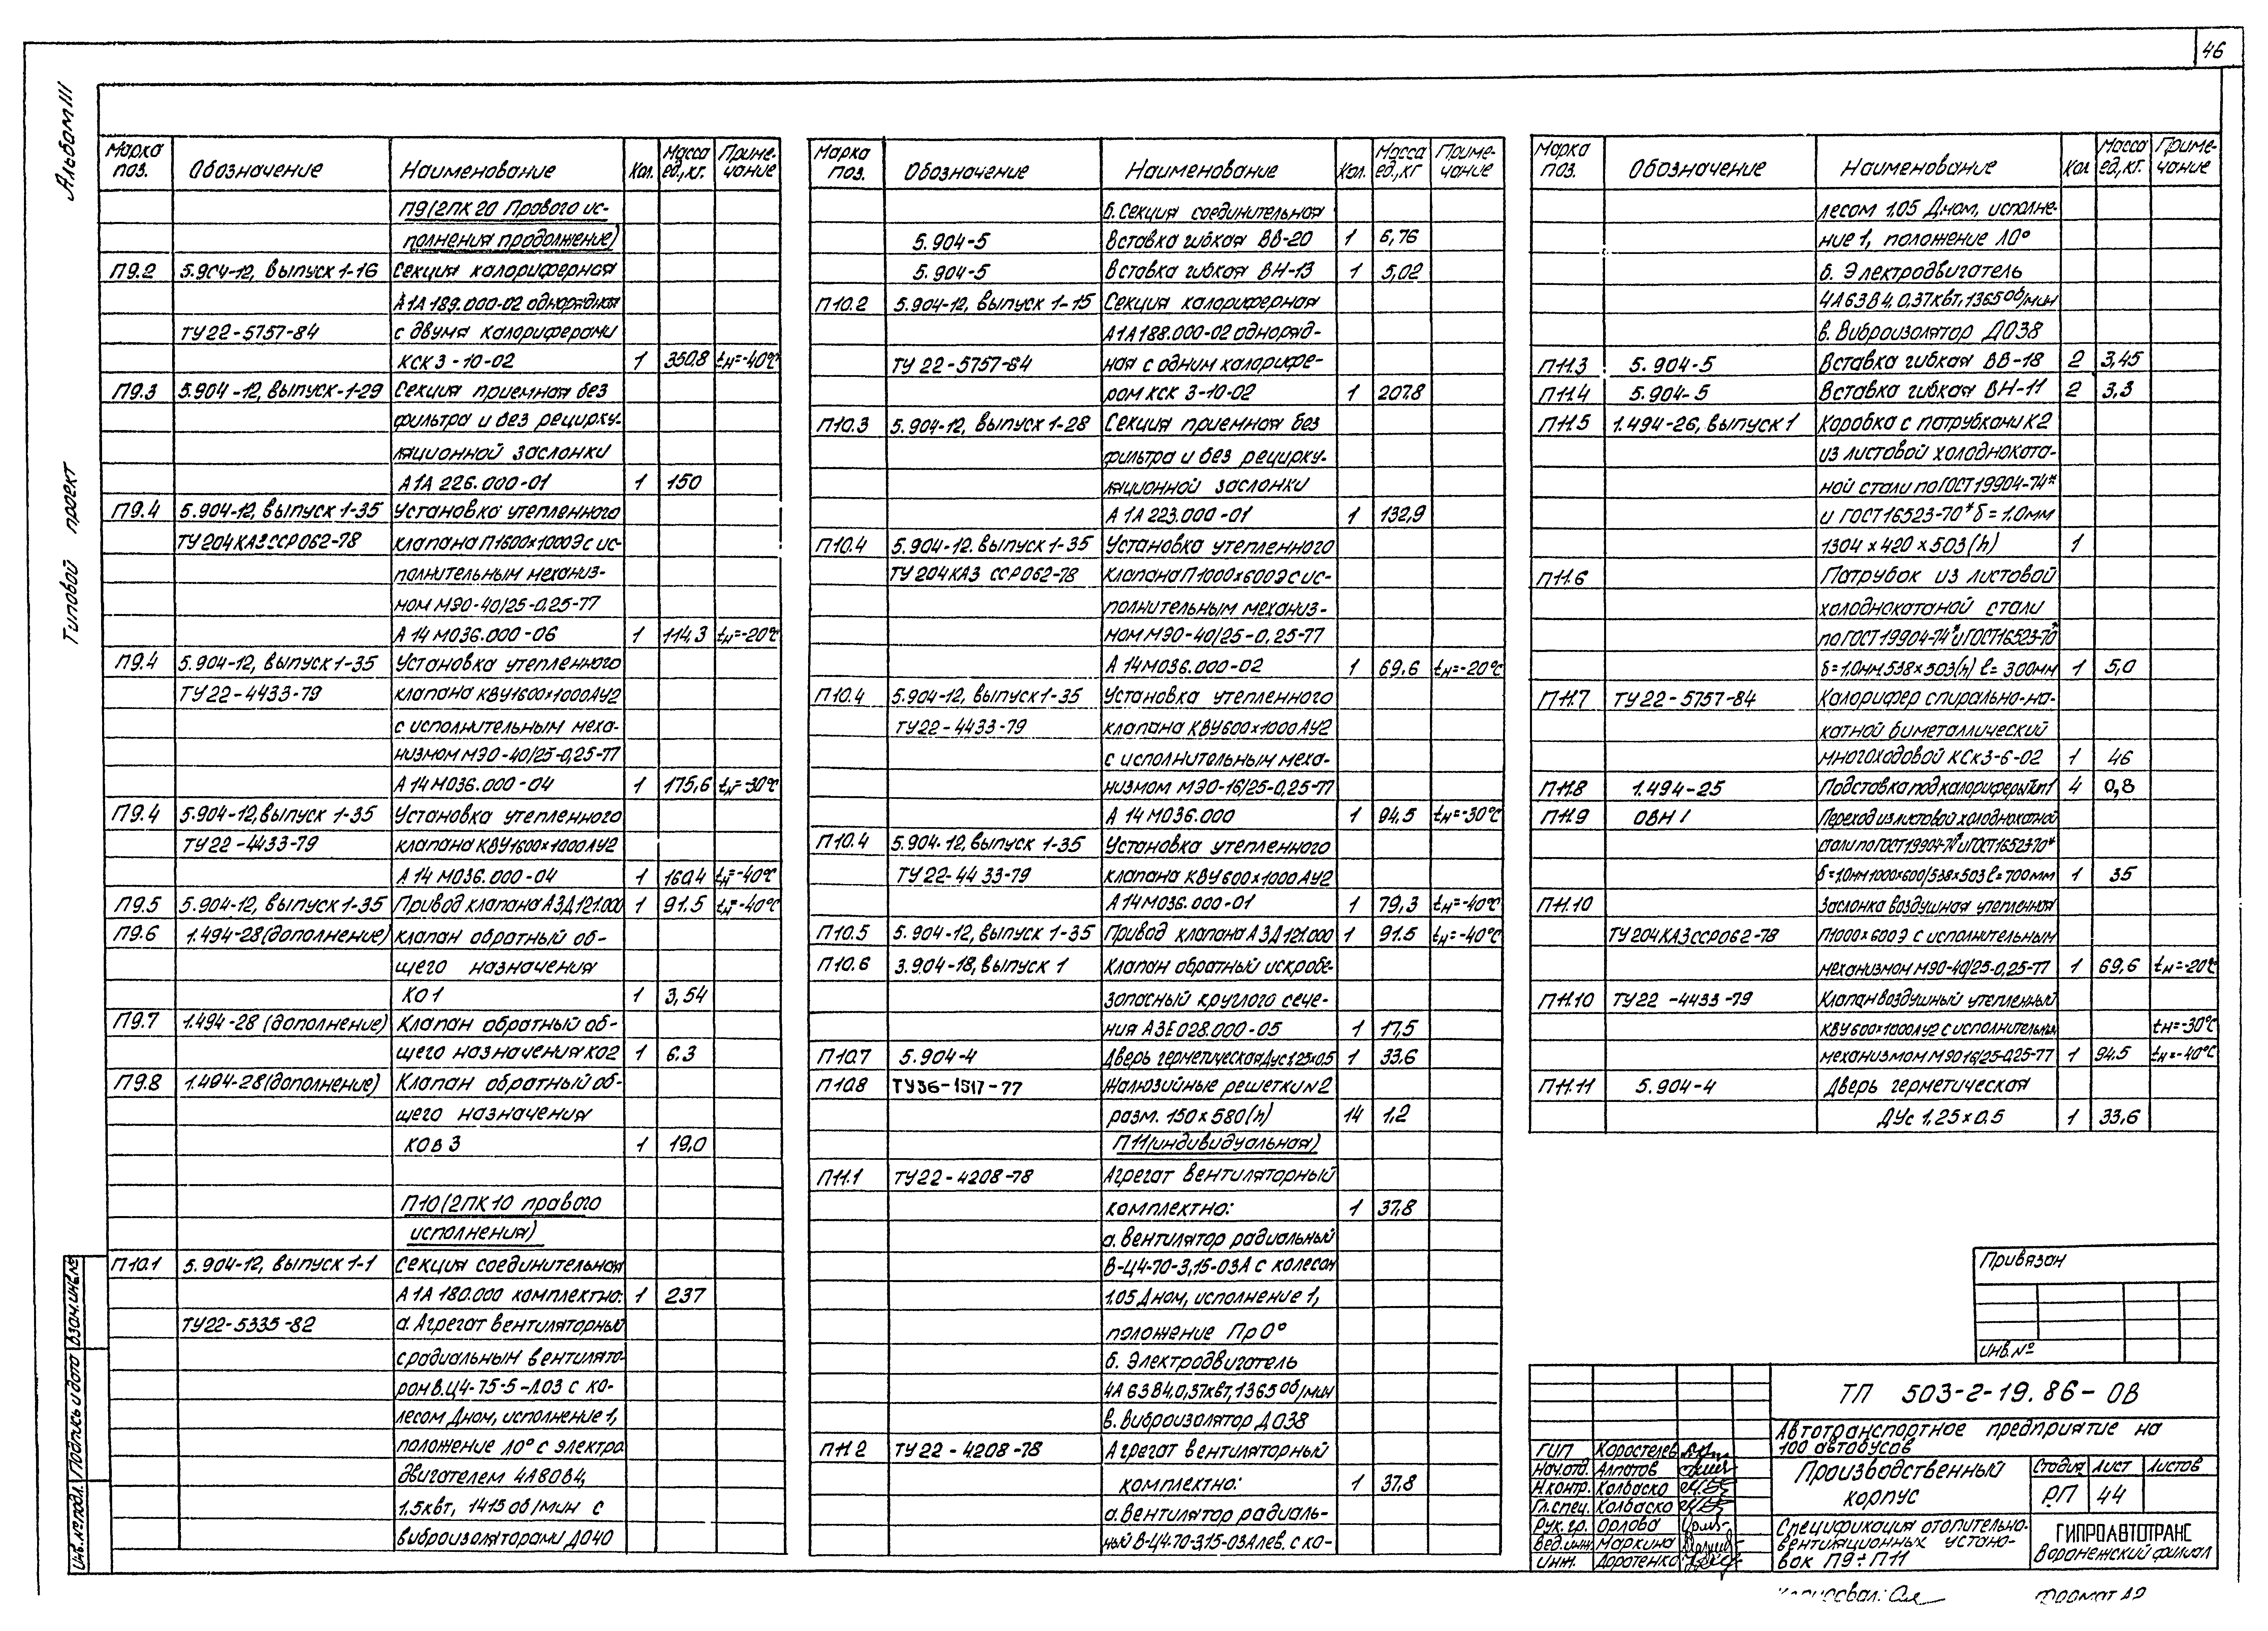 46
Альбом III
Типовой проект
Марка поз. Обозначение Наименование Кол. Масса ед., кг. Примечание
П9 (2ПК20 Правого ис-
полнения продолжение)
П9.2 5.904-12, выпуск 1-16 Секция калориферная
А1А 189.000-02 однорядная
ТУ22-5757-84 с двумя калориферами
КСК 3-10-02 1 350.8 tн=-40°С
П9.3 5.904-12, выпуск-1-29 Секция приемная без
фильтра и без рецирку-
ляционной заслонки
А1А 226.000-01 1 150
П9.4 5.904-12, выпуск 1-35 Установка утепленного
ТУ204КАЗССР062-78 клапана П1600х1000Э с ис-
полнительным механиз-
мом МЭО-40/25-0,25-77
А 14 М036.000-06 1 114,3 tн=-20°С
П9.4 5.904-12, выпуск 1-35 Установка утепленного
ТУ22-4433-79 клапана КВУ1600х1000АУ2
с исполнительным меха-
низмом МЭО-40/25-0,25-77
А 14 М036.000-04 1 175,6 tн=-30°С
П9.4 5.904-12, выпуск 1-35 Установка утепленного
ТУ22-4433-79 клапана КВУ1600х1000АУ2
А 14 М036.000-04 1 160.4 tн=-40°С
П9.5 5.904-12, выпуск 1-35 Привод клапана АЗД121.000 1 91.5 tн=-40°С
П9.6 1.494-28 (дополнение) клапан обратный об-
щего назначения
КО1 1 3,54
П9.7 1.494-28 (дополнение) Клапан обратный об-
щего назначения КО2 1 6.3
П9.8 1.494-28 (дополнение) Клапан обратный об-
щего назначения
КОВ3 1 19,0
П10 (2ПК10 правого
исполнения)
П10.1 5.904-12, выпуск 1-1 Секция соединительная
А1А 180.000 комплектно: 1 237
ТУ22-5335-82 а. Агрегат вентиляторный
с радиальным вентилято-
ром В.Ц4-75-5-Л03 с ко-
лесом Дном, исполнение 1,
положение Л0° с электро
двигателем 4А80В4,
1.5квт, 1415 об/мин с
виброизоляторами Д040
Марка поз. Обозначение Наименование Кол. Масса ед., кг Примечание
б. Секция соединительная
5.904-5 Вставка гибкая ВВ-20 1 6,76
5.904-5 Вставка гибкая ВН-13 1 5,02
П10.2 5.904-12, выпуск 1-15 Секция калориферная
А1А188.000-02 одноряд-
ТУ 22-5757-84 ная с одним калорифе-
ром КСК 3-10-02 1 207.8
П10.3 5.904-12, выпуск 1-28 Секция приемная без
фильтра и без рецирку-
ляционной заслонки
А1А 223.000-01 1 132,9
П10.4 5.904-12. выпуск 1-35 Установка утепленного
ТУ 204 КАЗ ССР 062-78 Клапана П1000х600Э с ис-
полнительным механиз-
мом МЭО-40/25-0,25-77
А 14М036.000-02 1 69,6 tн=-20°С
П10.4 5.904-12, выпуск 1-35 Установка утепленного
ТУ22-4433-79 клапана КВУ600х1000АУ2
с исполнительным меха-
низмом МЭО-16/25-0,25-77
А 14М036.000 1 94,5 tн=-30°С
П10.4 5.904-12, выпуск 1-35 Установка утепленного
ТУ22-4433-79 клапана КВУ600х1000АУ2
А14М036.000-01 1 79,3 tн=-40°С
П10.5 5.904-12, выпуск 1-35 Привод клапана АЗД121.000 1 91.5 tн=-40°С
П10.6 3.904-18, выпуск 1 Клапан обратный искробе-
зопасный круглого сече-
ния АЗЕ028.000-05 1 17,5
П10.7 5.904-4 Дверь герметическая Дус1,25х0,5 1 33.6
П10.8 ТУ36-1517-77 Жалюзийные решетки №2
разм. 150х580(h) 14 1,2
П11 (индивидуальная)
П11.1 ТУ22-4208-78 Агрегат вентиляторный
комплектно: 1 37.8
а. вентилятор радиальный
В-Ц4-70-3,15-03А с колесом
1.05 Дном, исполнение 1,
положение Пр0°
б. Электродвигатель
4А63В4,0,37квт,1365 об/мин
в. Виброизолятор Д038
П11.2 ТУ22-4208-78 Агрегат вентиляторный
комплектно: 1 37.8
а. вентилятор радиаль-
ный В-Ц4-70-3,15-03А лев. с ко-
Марка поз. Обозначение Наименование Кол Масса ед., кг. Примечание
лесом 1.05 Дном, исполне-
ние 1, положение Л0°
б. Электродвигатель
4А63В4, 0,37квт,1365об/мин
в. Виброизолятор Д038
П11.3 5.904-5 Вставка гибкая ВВ-18 2 3,45
П11.4 5.904-5 Вставка гибкая ВН-11 2 3,3
П11.5 1.494-26, выпуск 1 Коробка с патрубками К2
из листовой холодноката-
ной стали по ГОСТ 19904-74*
и ГОСТ16523-70* δ=1.0мм
1304х420х503(h) 1
П11.6 Патрубок из листовой
холоднокатаной стали
по ГОСТ19904-74* и ГОСТ16523-70*
δ=1.0мм,538х503(h) ℓ=300мм 1 5,0
П11.7 ТУ22-5757-84 Калорифер спирально-на-
катной биметаллический
многоходовой КСк3-6-02 1 46
П11.8 1.494-25 Подставка под калориферы Тип1 4 0,8
П11.9 ОВН1 Переход из листовой холоднокатной
стали по ГОСТ19904-74* и ГОСТ16523-70*
δ=1.0мм 1000х600/538х503 ℓ=700мм 1 35
П11.10 Заслонка воздушная утепленная
ТУ204КАЗССР062-78 П1000х600Э с исполнительным
механизмом МЭО-40/25-0,25-77 1 69,6 tн=-20°С
П11.10 ТУ22-4433-79 Клапан воздушный утепленный
КВУ600х1000АУ2 с исполнительн. tн=-30°С
механизмом МЭО16/25-0,25-77 1 94.5 tн=-40°С
П11.11 5.904-4 Дверь герметическая
ДУс 1,25х0.5 1 33,6
Привязан
Инв.№
ТП 503-2-19.86-ОВ
Автотранспортное предприятие на
100 автобусов
ГИП Коростелев
Нач.отд. Алпатов
Н.контр. Колбаско
Гл.спец. Колбаско
Рук.гр. Орлова
Вед.инж. Маркина
Инж. Доротенко
Производственный
корпус
Стадия Лист Листов
РП 44
Спецификация отопительно-
вентиляционных устано-
вок П9÷П11
ГИПРОАВТОТРАНС
Воронежский филиал
Инв.№подл. Подпись и дата Взам.инв.№
Формат А2